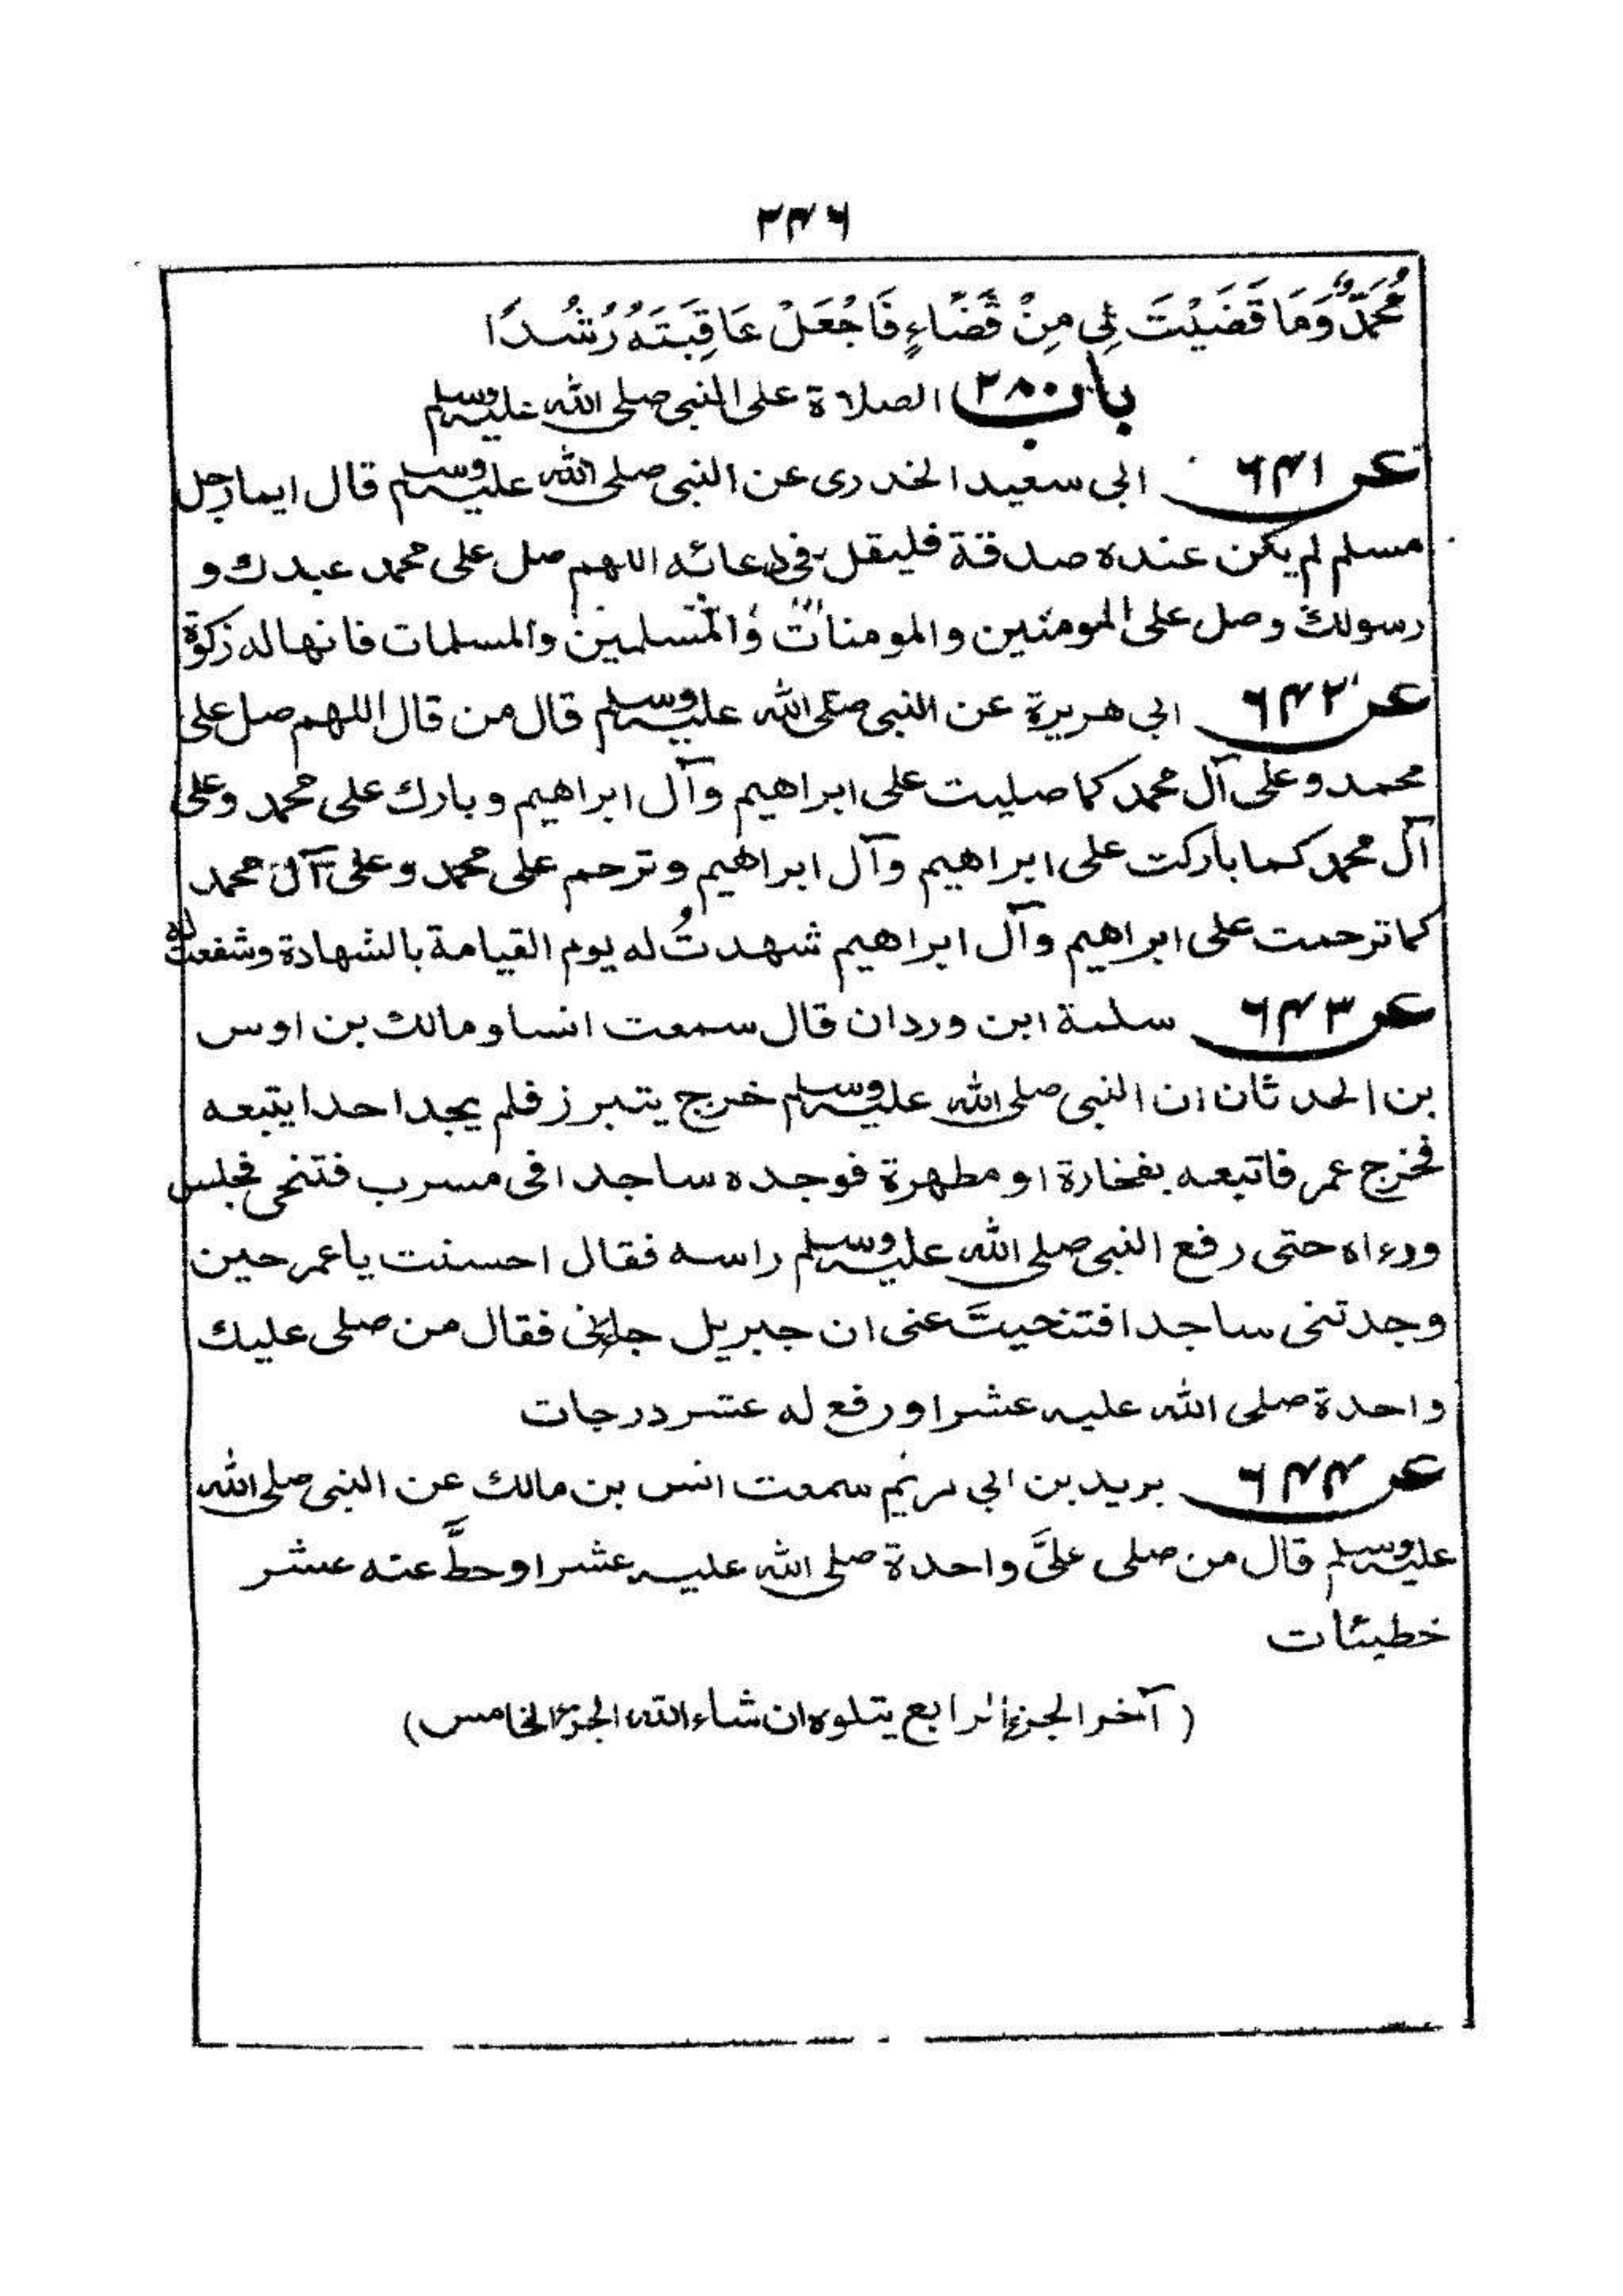 ۲۴۶
مُحَمَّدٌ وَمَا قَضَيْتَ لِي مِنْ قَضَاءٍ فَاجْعَلْ عَاقِبَتَهُ رُشْدًا
باب ۲۸۰ الصلاة على النبي صلى الله عليه وسلم
عن ۶۴۱ ابي سعيد الخدرى عن النبي صلى الله عليه وسلم قال ايما رجل
مسلم لم يكن عنده صدقة فليقل فى دعائه اللهم صل على محمد عبدك و
رسولك وصل على المومنين والمومنات والمسلمين والمسلمات فانها له زكوة
عن ۶۴۲ ابي هريرة عن النبي صلى الله عليه وسلم قال من قال اللهم صل على
محمد وعلى آل محمد كما صليت على ابراهيم وآل ابراهيم وبارك على محمد وعلى
آل محمد كما باركت على ابراهيم وآل ابراهيم وترحم على محمد وعلى آل محمد
كما ترحمت على ابراهيم وآل ابراهيم شهدتُ له يوم القيامة بالشهادة وشفعت له
عن ۶۴۳ سلمة ابن وردان قال سمعت انسا ومالك بن اوس
بن الحدثان ان النبي صلى الله عليه وسلم خرج يتبرز فلم يجد احدا يتبعه
فخرج عمر فاتبعه بفخارة او مطهرة فوجده ساجدا فى مسرب فتنحى فجلس
وراءه حتى رفع النبي صلى الله عليه وسلم راسه فقال احسنت يا عمر حين
وجدتنى ساجدا فتنحيتَ عنى ان جبريل جاءنى فقال من صلى عليك
واحدة صلى الله عليه عشرا ورفع له عشر درجات
عن ۶۴۴ بريد بن ابي مريم سمعت انس بن مالك عن النبي صلى الله
عليه وسلم قال من صلى علىَّ واحدة صلى الله عليه عشرا وحطَّ عنه عشر
خطيئات
(آخر الجزء الرابع يتلوه ان شاء الله الجزء الخامس)